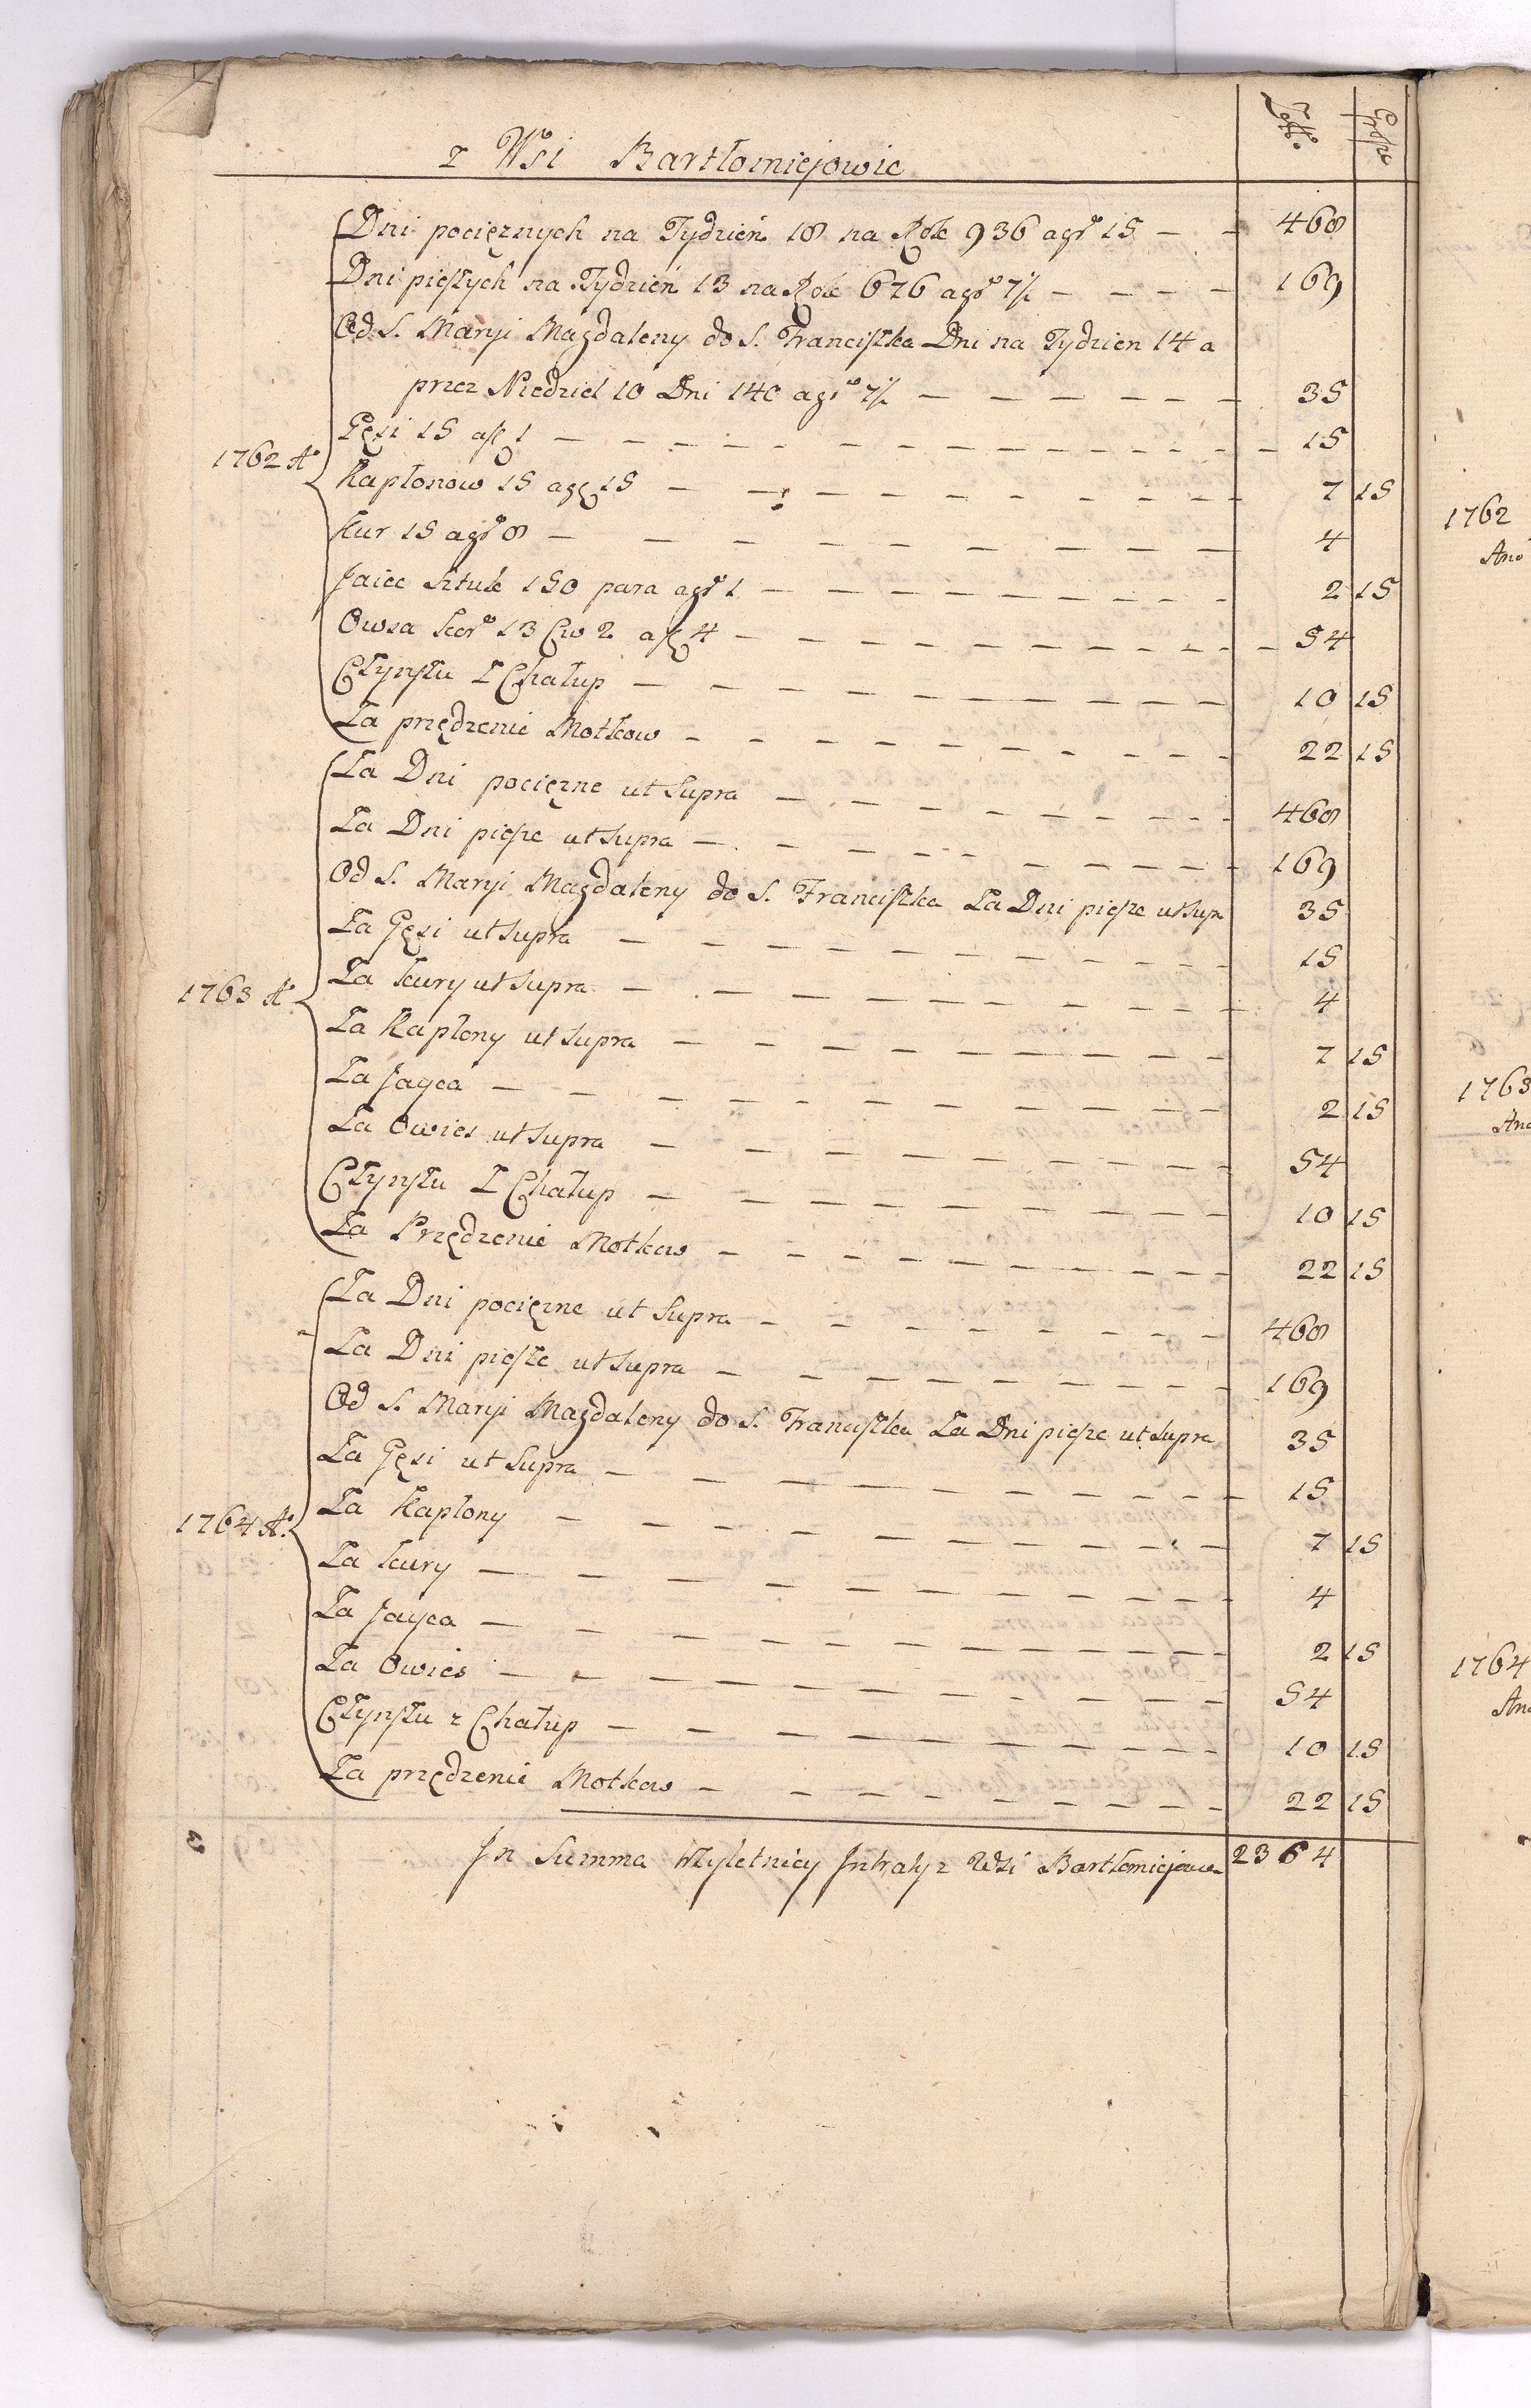 z Wsi Bartłomiejowic Złł. Grpo
Dni pocięznych na Tydzień 18 na Rok 936 a grõ 15 — — 468
Dni pieszych na Tydzień 13 na Rok 676 a grõ 7½ — — — — 169
Od S. Maryi Magdaleny do S. Franciszka Dni na Tydzien 14 a
przez Niedziel 10 Dni 140 a grõ 7½ — — — — — — 35
Gęsi 15 a zł 1 — — — — — — — — — — — — — 15
1762 Aº
Kapłonow 15 a gr 15 — — — — — — — — — — 7 15
Kur 15 a grõ 8 — — — — — — — — — 4
Jaiec Sztuk 150 para a grõ 1 — — — — — — — — — — 2 15
Owsa korº 13 Cw 2 a zł 4 — — — — — — — — — — — — 54
Czynszu Z Chałup — — — — — — — — — 10 15
Za przędzenie Motkow — — — — — — — — — — 22 15
Za Dni pocięzne ut Supra — — — — — — — — — 468
Za Dni piesze ut Supra — — — — — — — — — — — 169
Od S. Maryi Magdaleny do S. Franciszka Za Dni piesze ut Supr 35
Za Gęsi ut Supra — — — — — — — — — — 15
1763 Aº
Za kury ut Supra — — — — — — — — — 4
Za Kapłony ut Supra — — — — — — — — — 7 15
Za Jayca — — — — — — — — — — — — 2 15
Za Owies ut Supra — — — — — — — — — — 54
Czynszu Z Chałup — — — — — — — — — — 10 15
Za Przędzenie Motkow — — — — — — — — — — 22 15
Za Dni pocięzne ut Supra — — — — — — — — 468
Za Dni piesze ut Supra — — — — — — — — — 169
Od S. Maryi Magdaleny do S. Franciszka Za Dni piesze ut Supra 35
Za Gęsi ut Supra — — — — — — — — — — — 15
1764 Aº
Za Kapłony — — — — — — — — — — — 7 15
Za kury — — — — — — — — — — — 4
Za Jayca — — — — — — — — — — — — 2 15
Za Owies — — — — — — — — — — — 54
Czynszu z Chałup — — — — — — — — — — 10 15
Za przędzenie Motkow — — — — — — — — 22 15
Jn Summa trzyletnicy Jntraty z Wsi Bartłomiejowic 2364
1762
Ano
1763
Ano
1764
Ano